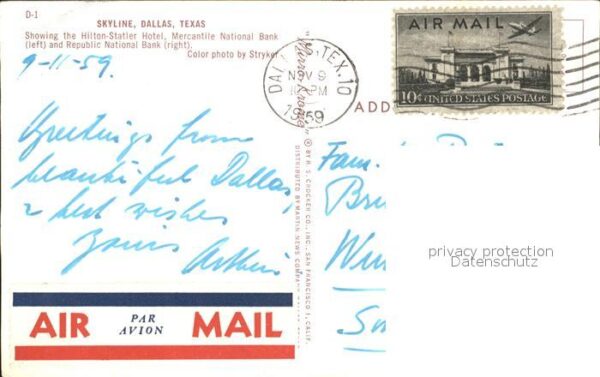 D-1
SKYLINE, DALLAS, TEXAS
Showing the Hilton-Statler Hotel, Mercantile National Bank
(left) and Republic National Bank (right).
Color photo by Stryker
9-11-59.
Greetings from
beautiful Dallas,
& best wishes
Yours
Arthur
AIR PAR AVION MAIL
© BY H. S. CROCKER CO., INC., SAN FRANCISCO 1, CALIF.
DISTRIBUTED BY MARTIN NEWS COMPANY
DALLAS, TEX. 10
NOV 9
PM
1959
AIR MAIL
10¢ UNITED STATES POSTAGE
ADD
Fam.
Bru
Win
privacy protection
Datenschutz